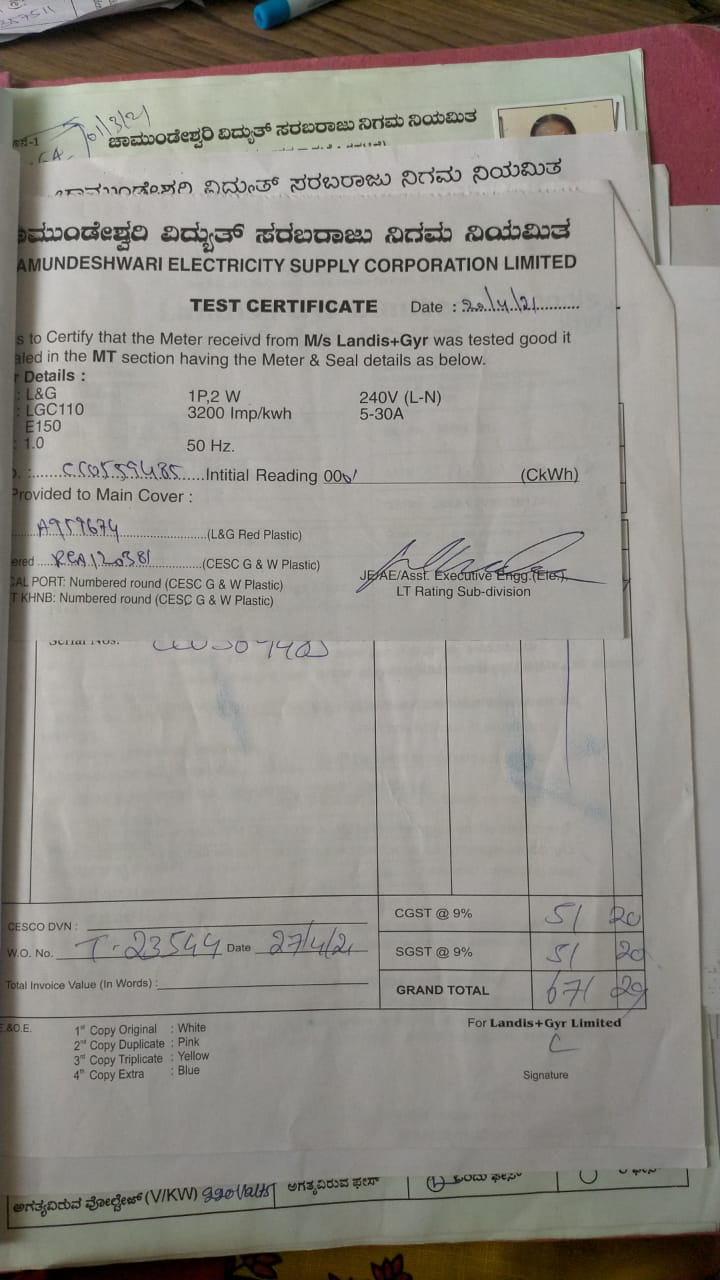 257511
01/3/21
ಚಾಮುಂಡೇಶ್ವರಿ ವಿದ್ಯುತ್ ಸರಬರಾಜು ನಿಗಮ ನಿಯಮಿತ
ಚಾಮುಂಡೇಶ್ವರಿ ವಿದ್ಯುತ್ ಸರಬರಾಜು ನಿಗಮ ನಿಯಮಿತ
ಾಮುಂಡೇಶ್ವರಿ ವಿದ್ಯುತ್ ಸರಬರಾಜು ನಿಗಮ ನಿಯಮಿತ
AMUNDESHWARI ELECTRICITY SUPPLY CORPORATION LIMITED
TEST CERTIFICATE Date : 20/4/21
s to Certify that the Meter receivd from M/s Landis+Gyr was tested good it
aled in the MT section having the Meter & Seal details as below.
r Details :
: L&G 1P,2 W 240V (L-N)
: LGC110 3200 Imp/kwh 5-30A
E150
: 1.0 50 Hz.
Intitial Reading 00 (CkWh)
Provided to Main Cover :
A959674 (L&G Red Plastic)
ered (CESC G & W Plastic)
CAL PORT: Numbered round (CESC G & W Plastic)
T KHNB: Numbered round (CESC G & W Plastic)
JE/AE/Asst. Executive Engg.(Ele.).
LT Rating Sub-division
Serial Nos.
CESCO DVN :
W.O. No. T-23544 Date 27/4/21
Total Invoice Value (In Words) :
CGST @ 9% 51 20
SGST @ 9% 51 20
GRAND TOTAL 671 29
E.&O.E.
1st Copy Original : White
2nd Copy Duplicate : Pink
3rd Copy Triplicate : Yellow
4th Copy Extra : Blue
For Landis+Gyr Limited
Signature
ಅಗತ್ಯವಿರುವ ವೋಲ್ಟೇಜ್ (V/KW) 220 Volts ಅಗತ್ಯವಿರುವ ಫೇಸ್ ಒಂದು ಫೇಸ್